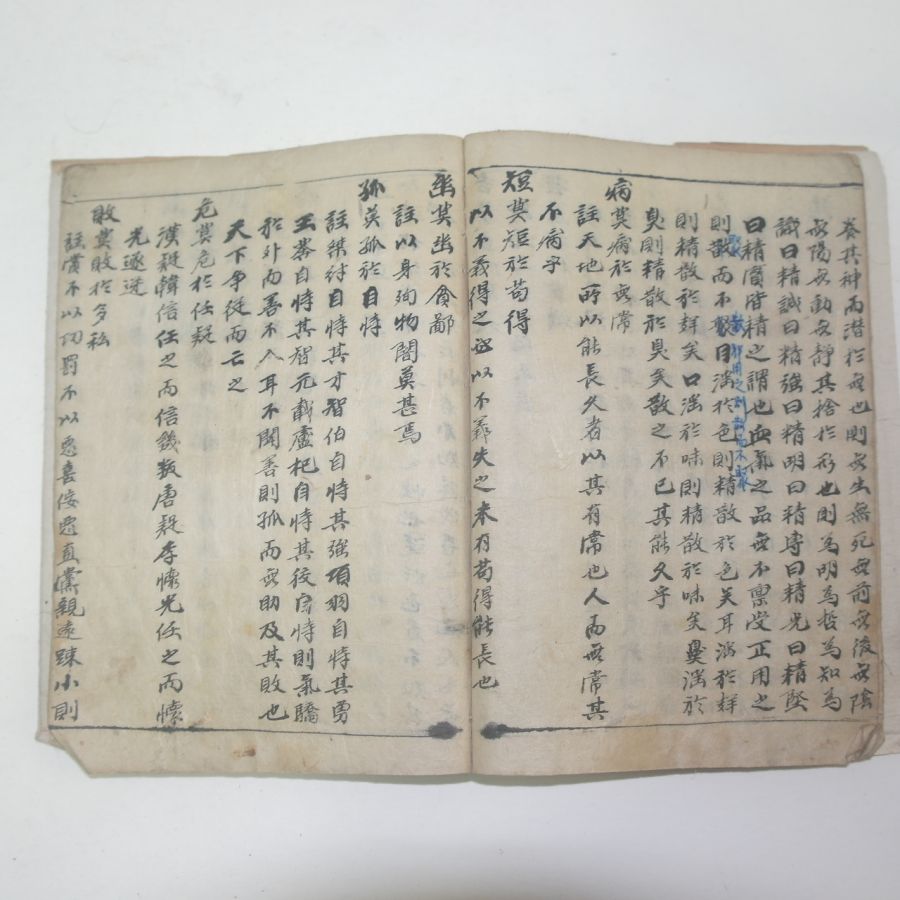 養其神而潛於無也則無生無死無前無後無陰
無陽無動無靜其捨於形也則為明為哲為知為
識曰精誠曰精強曰精明曰精専曰精光曰精堅
曰精實皆精之謂也血氣之品無不禀受正用之
則散而不聚目滛於色則精散於色矣耳滛於聲
聚
散邪用之則散而不聚
則精散於聲矣口滛於味則精散於味矣鼻滛於
臭則精散於臭矣散之不已其能久乎
病莫病於無常
註天地所以能長久者以其有常也人而無常其
不病乎
短莫短於苟得
以不義得之必以不義失之未有苟得能長也
幽莫幽於貪鄙
註以身殉物闇莫甚焉
孤莫孤於自恃
註桀紂自恃其才智伯自恃其強項羽自恃其勇
王莽自恃其智元載盧杞自恃其狡自恃則氣驕
於外而善不入耳不聞善則孤而無助及其敗也
天下爭從而亡之
危莫危於任疑
漢疑韓信任之而信幾叛唐疑李懷光任之而懷
光遂逆
敗莫敗於多私
註賞不以功罰不以惡喜侫惡直黨親遠踈小則